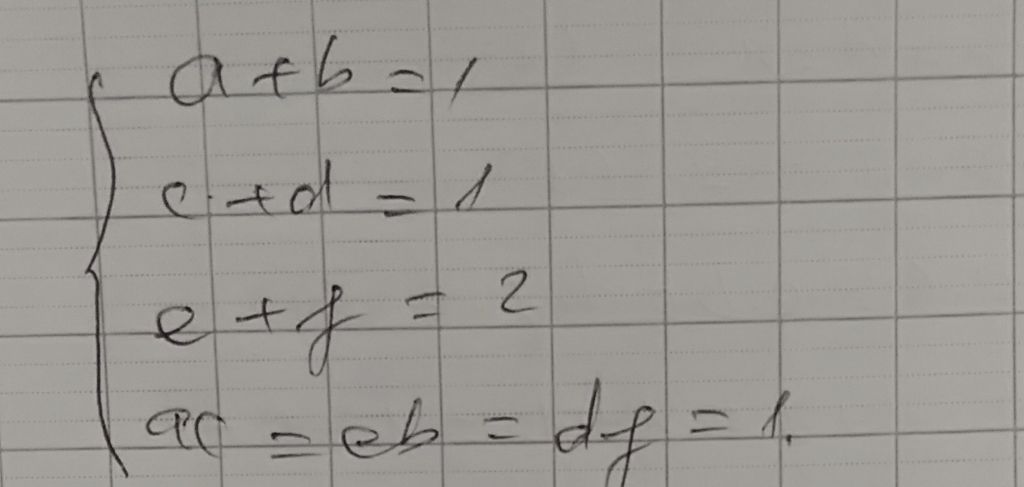 a + b = 1
c + d = 1
e + f = 2
ac = eb = df = 1.